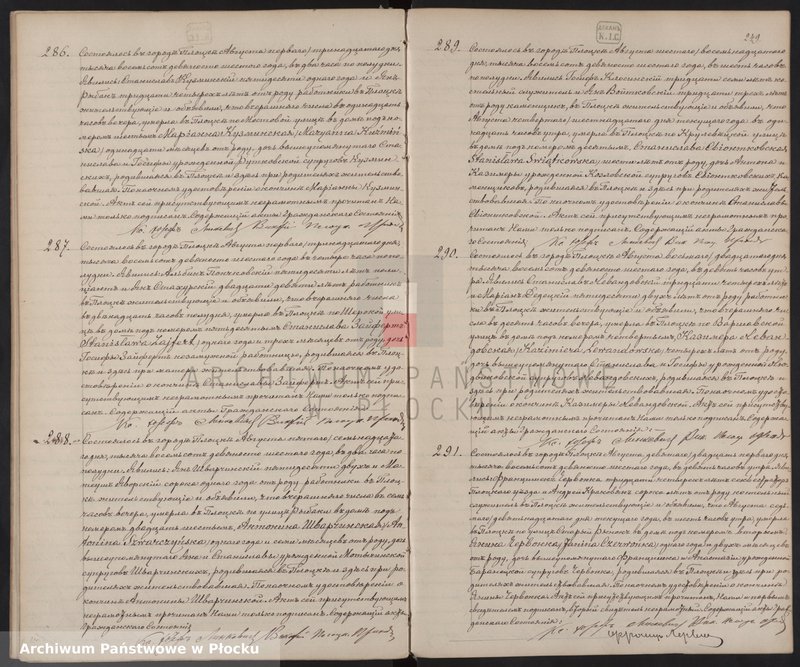 286. Состоялось въ городѣ Плоцкѣ Августа перваго/тринадцатаго дня,
тысяча восемьсотъ девяносто шестого года, въ два часа по полудни.
Явились: Станиславъ Кузминскій пятидесяти одного года и Янъ
Рыбакъ тридцати четырехъ лѣтъ отъ роду работники въ Плоцкѣ
жительствующіе и объявили, что вчерашняго числа въ одинадцать
часовъ вечера, умерла въ Плоцкѣ по Мостовой улицѣ въ домѣ подъ но-
меромъ шестымъ Маріанна Кузминская /Maryanna Kuźmiń-
ska/ одинадцати мѣсяцевъ отъ роду, дочь вышеупомянутаго Ста-
нислава и Іосифы урожденной Рутковской супруговъ Кузмин-
скихъ, родившаяся въ Плоцкѣ и здѣсь при родителяхъ жительство-
вавшая. По наочномъ удостовѣреніи о кончинѣ Маріанны Кузмин-
ской. Актъ сей присутствующимъ неграмотнымъ прочитанъ На-
ми только подписанъ. Содержащій акты Гражданскаго Состоянія
287. Состоялось въ городѣ Плоцкѣ Августа перваго/тринадцатаго дня,
тысяча восемьсотъ девяносто шестого года въ четыре часа по по-
лудни. Явились: Альбинъ Генчковскій пятидесяти лѣтъ поли-
ціантъ и Янъ Стахурскій двадцати девяти лѣтъ работникъ
въ Плоцкѣ жительствующіе и объявили, что вчерашняго числа
въ двѣнадцать часовъ полудня, умерло въ Плоцкѣ по Широкой ули-
цѣ въ домѣ подъ номеромъ пятьдесятымъ Станислава Зайфертъ
/Stanisława Zajfert/, одного года и трехъ мѣсяцевъ отъ роду, дочь
Іосифы Зайфертъ незамужней работницы, родившаяся въ Плоц-
кѣ и здѣсь при матери жительствовавшая. По наочномъ удо-
стовѣреніи о кончинѣ Станиславы Зайфертъ. Актъ сей при-
сутствующимъ неграмотнымъ прочитанъ Нами только подпи-
санъ. Содержащій акты Гражданскаго Состоянія
288. Состоялось въ городѣ Плоцкѣ Августа пятаго/семнадцата-
го дня, тысяча восемьсотъ девяносто шестого года, въ два часа по
полудни. Явились: Янъ Шварчинскій пятидесяти двухъ и Ма-
теушъ Яворскій сорока одного года отъ роду, работники въ Плоц-
кѣ жительствующіе и объявили, что вчерашняго числа въ семь
часовъ вечера, умерла въ Плоцкѣ по улицѣ Рыбаки въ домѣ подъ
номеромъ двадцать шестымъ, Антонина Шварчинская /An-
tonina Szwarczyńska/, одного года и семи мѣсяцевъ отъ роду, дочь
вышеупомянутаго Яна и Станиславы урожденной
супруговъ Шварчинскихъ, родившаяся въ Плоцкѣ и здѣсь при ро-
дителяхъ жительствовавшая. По наочномъ удостовѣреніи о
кончинѣ Антонины Шварчинской. Актъ сей присутствующимъ
неграмотнымъ прочитанъ Нами только подписанъ. Содержащій акты
Гражданскаго Состоянія
289. Состоялось въ городѣ Плоцкѣ Августа шестаго/восемнадцатаго
дня, тысяча восемьсотъ девяносто шестого года, въ шесть часовъ
по полудни. Явились: Іосифъ Клосинскій тридцати семи лѣтъ ко-
стельный служитель и Янъ Войтковскій тридцати трехъ лѣтъ
отъ роду каменщикъ, въ Плоцкѣ жительствующіе и объявили, что
Августа четвертаго/шестнадцатаго дня текущаго года въ оди-
надцать часовъ утра, умерла въ Плоцкѣ по улицѣ
въ домѣ подъ номеромъ десятымъ, Станислава Свіонтковская,
/Stanisława Świątkowska/ шести лѣтъ отъ роду, дочь Антона и
Казимеры урожденной Козловской супруговъ Свіонтковскихъ ка-
менщиковъ, родившаяся въ Плоцкѣ и здѣсь при родителяхъ житель-
ствовавшая. По наочномъ удостовѣреніи о кончинѣ Станиславы
Свіонтковской. Актъ сей присутствующимъ неграмотнымъ про-
читанъ Нами только подписанъ. Содержащій акты Гражданска-
го Состоянія
290. Состоялось въ городѣ Плоцкѣ Августа восьмаго/двадцатаго дня,
тысяча восемьсотъ девяносто шестого года, въ девять часовъ ут-
ра. Явились: Станиславъ Левандовскій тридцати четырехъ лѣтъ
и Маріанъ пятидесяти двухъ лѣтъ отъ роду работни-
ки въ Плоцкѣ жительствующіе и объявили, что вчерашняго чи-
сла въ десять часовъ вечера, умерла въ Плоцкѣ по Варшавской
улицѣ въ домѣ подъ номеромъ четвертымъ, Казимера Леван-
довская /Kazimiera Lewandowska/ четырехъ лѣтъ отъ роду,
дочь вышеупомянутаго Станислава и Іосифы урожденной
супруговъ Левандовскихъ, родившаяся въ Плоцкѣ и
здѣсь при родителяхъ жительствовавшая. По наочномъ удосто-
вѣреніи о кончинѣ Казимеры Левандовской. Актъ сей присутству-
ющимъ неграмотнымъ прочитанъ Нами только подписанъ. Содержа-
щій акты Гражданскаго Состоянія:
291. Состоялось въ городѣ Плоцкѣ Августа девятаго/двадцать перваго дня,
тысяча восемьсотъ девяносто шестого года, въ девять часовъ утра. Яви-
лись: Францишекъ Червонка тридцати четырехъ лѣтъ
Плоцкаго уѣзда и Андрей сорока лѣтъ отъ роду костельный
служитель въ Плоцкѣ жительствующіе и объявили, что Августа седь-
маго/девятнадцатаго дня текущаго года, въ шесть часовъ утра, умерла
въ Плоцкѣ по улицѣ въ домѣ подъ номеромъ вторымъ,
Янина Червонка /Janina Czerwonka/ одного года и двухъ мѣсяцевъ
отъ роду, дочь вышеупомянутаго Францишка и Анастазіи урожденной
супруговъ Червонка, родившаяся въ Плоцкѣ и здѣсь при ро-
дителяхъ жительствовавшая. По наочномъ удостовѣреніи о кончинѣ
Янины Червонка. Актъ сей присутствующимъ прочитанъ, Нами и первымъ
свидѣтелемъ подписанъ, второй свидѣтель неграмотный. Содержащій акты Граж-
данскаго Состоянія:
ARCHIWUM PAŃSTWOWE
W PŁOCKU
Archiwum Państwowe w Płocku